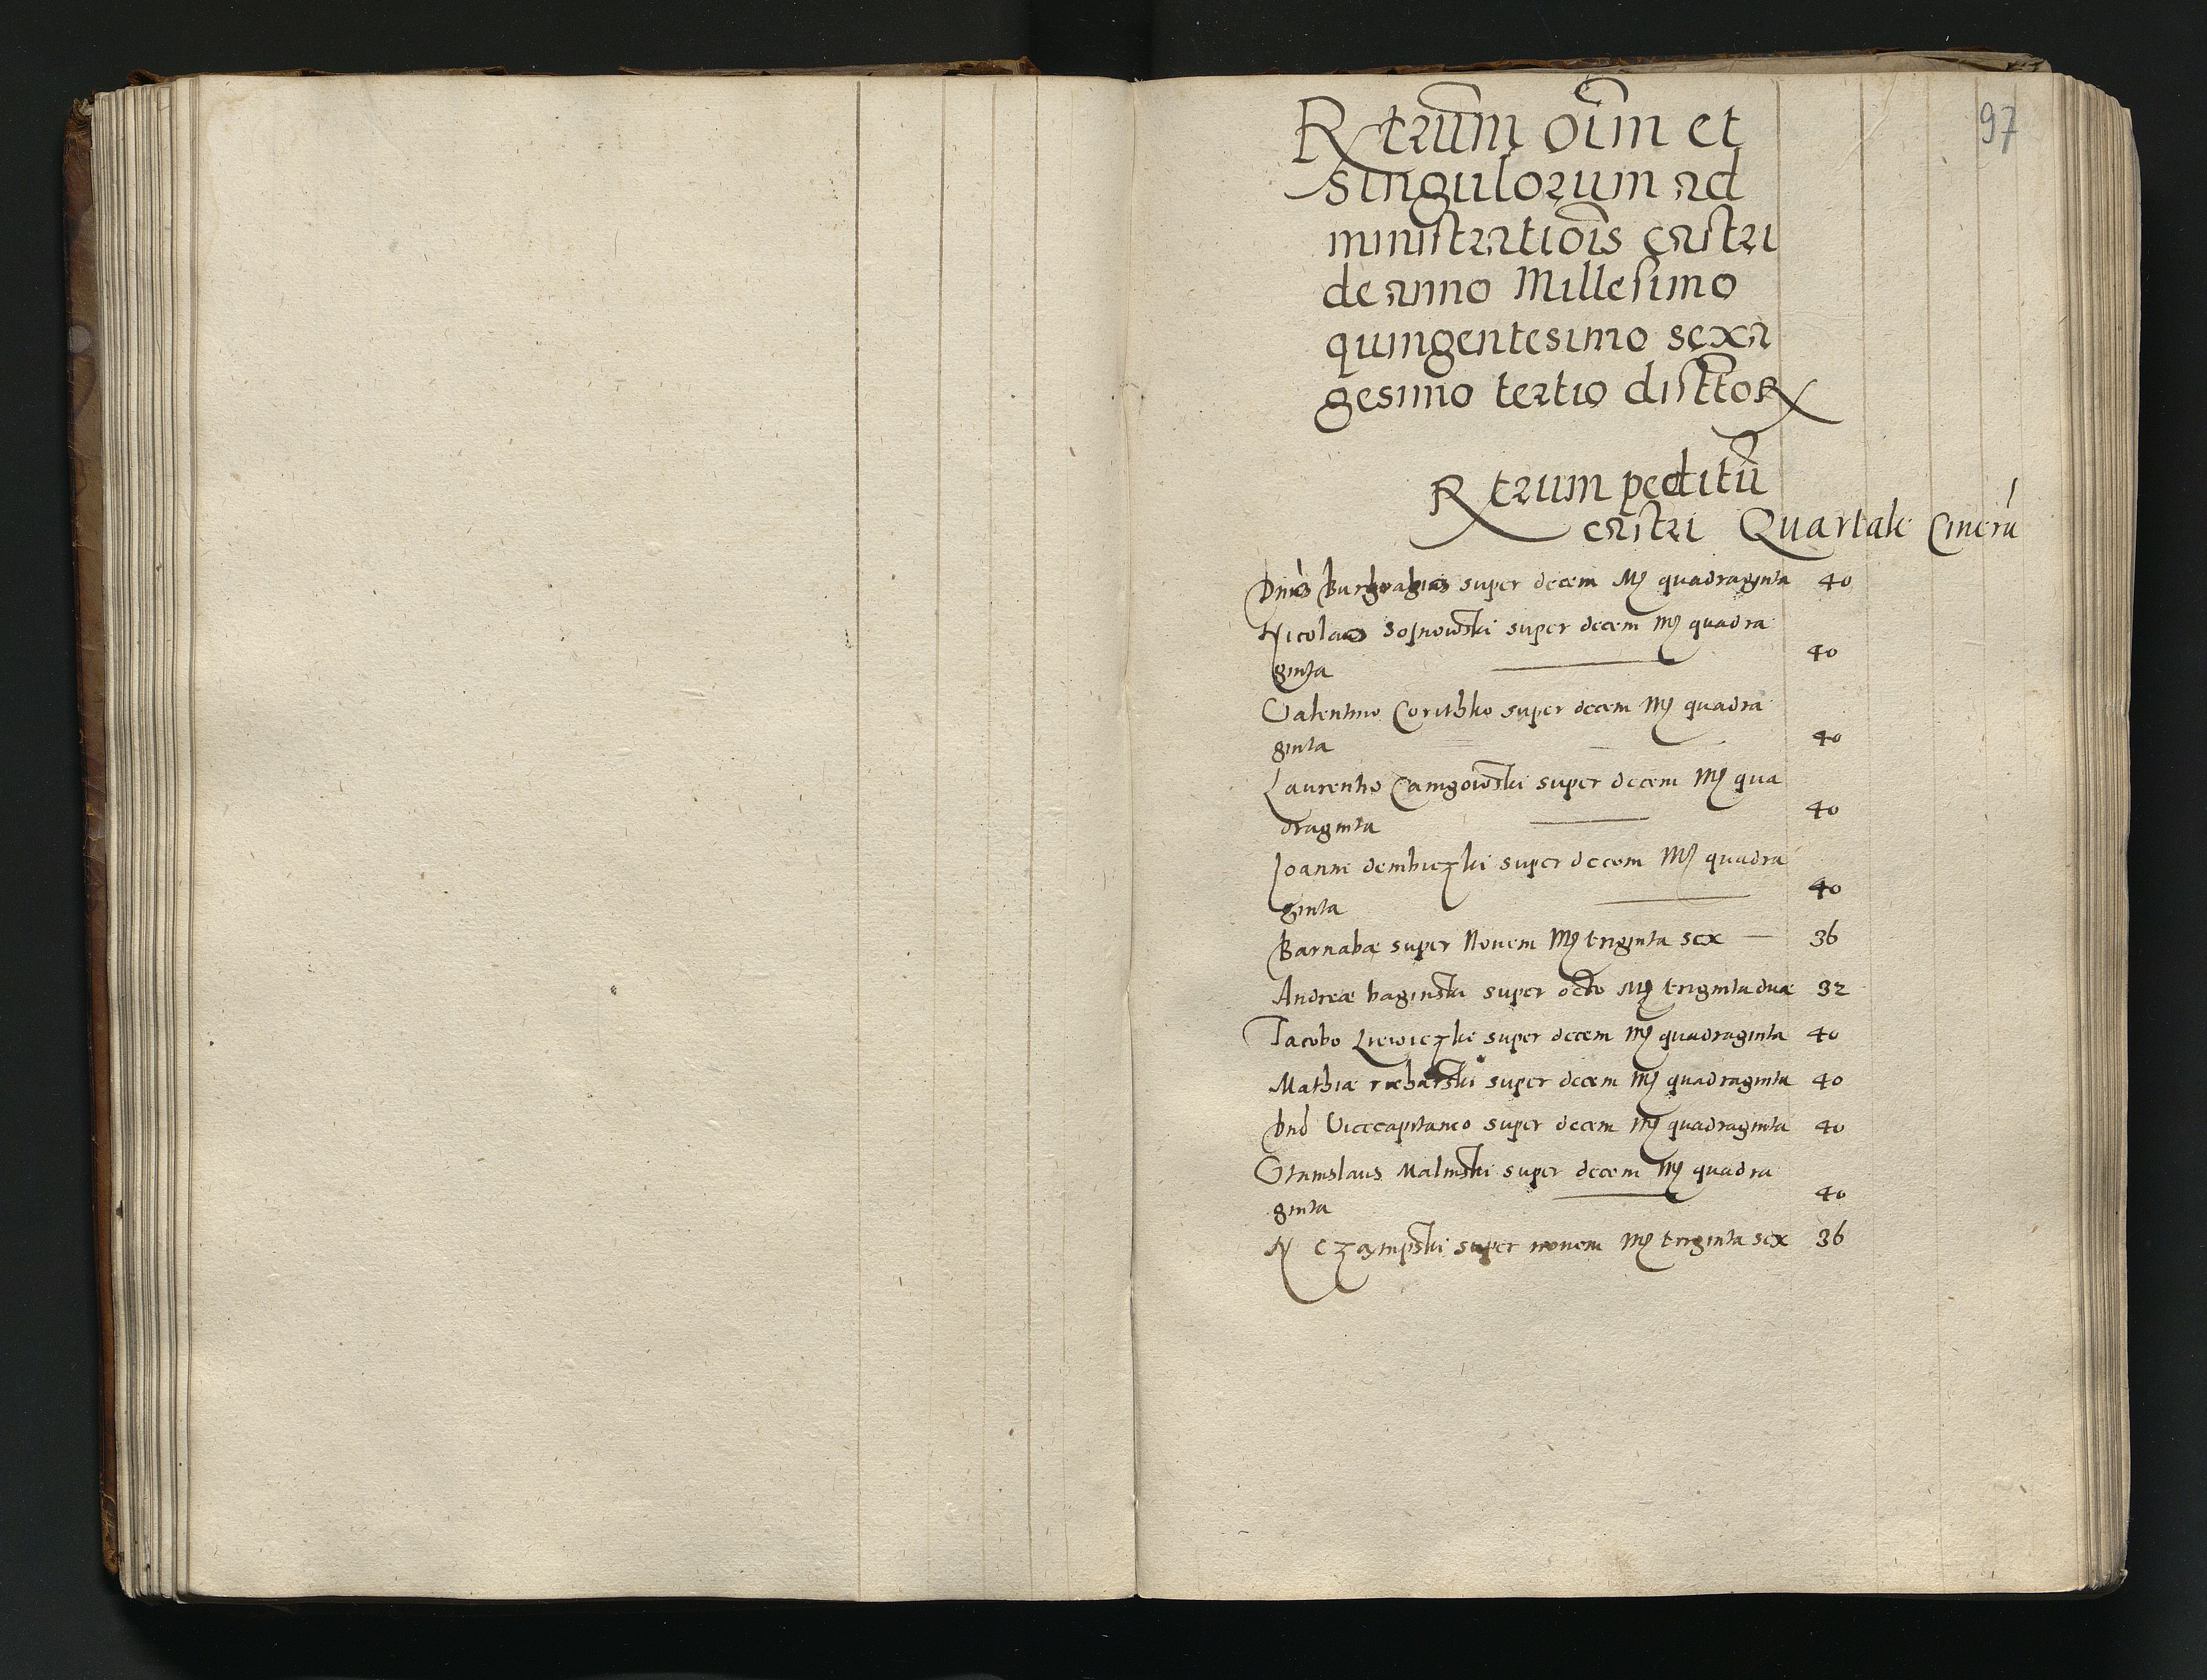 97
Rtrum oim et
singulorum ad
ministratiois castri
de anno Millesimo
quingentesimo sexa
gesimo tertio disttor
Rtrum peditu
castri Quartale Cineru
Dnus Burgrabius super decem M quadraginta 40
Nicolaus Sosnowski super decem M quadra
ginta 40
Valentino Corithko super decem M quadra
ginta 40
Laurentio Camgowski super decem M qua
draginta 40
Joanni dembiczki super decem M quadra
ginta 40
Barnabæ super Novem M triginta sex 36
Andreæ baginski super octo M triginta duæ 32
Jacobo Liewiczki super decem M quadraginta 40
Mathiæ super decem M quadraginta 40
Dno Vicecapitaneo super decem M quadraginta 40
Stanislaus Malinski super decem M quadra
ginta 40
N super novem M triginta sex 36